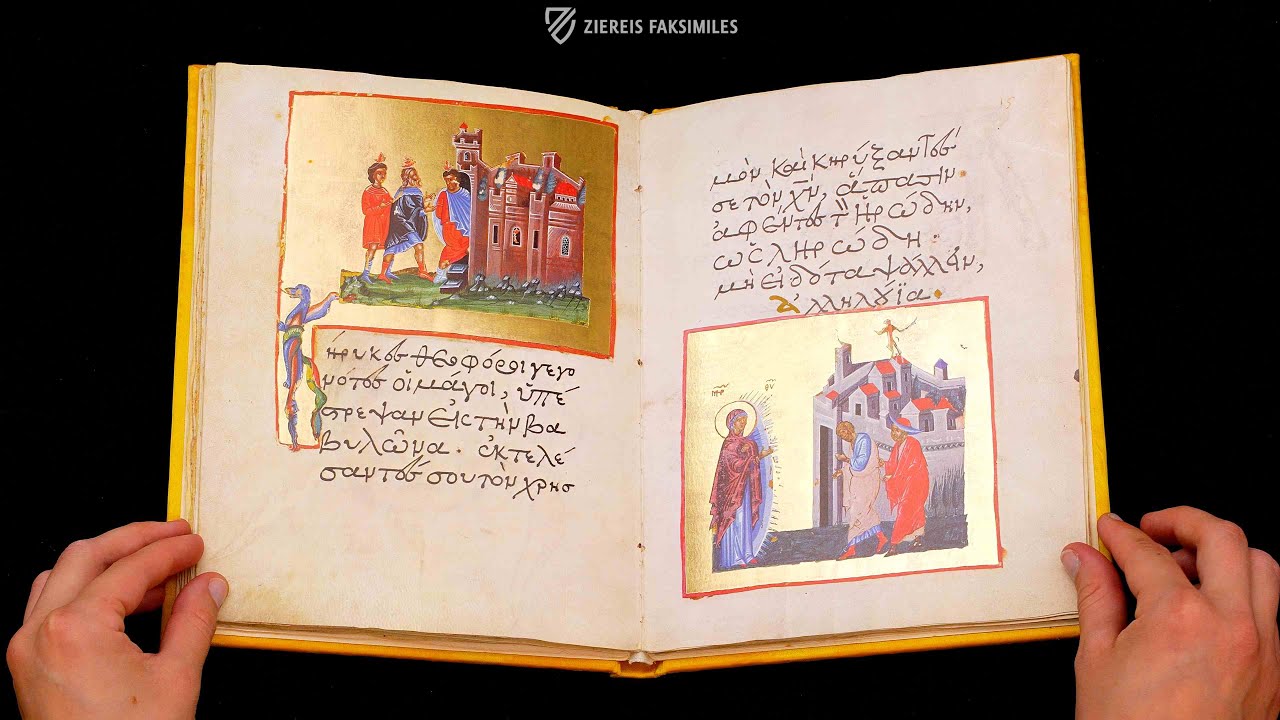 ZIEREIS FAKSIMILES
Κήρυκες θεοφόροι γεγο
νότες οἱ μάγοι, ὑπέ
στρεψαν εἰς τὴν βα
βυλῶνα · ἐκτελέ
σαντές σου τὸν χρησ
15
μὸν καὶ κηρύξαντές
σε τὸν χ̅ν̅, ἅπασιν·
ἀφέντες τὸν ἡρώδην,
ὡς ληρώδη ·
μὴ εἰδότα ψάλλειν,
ἀλληλούϊα·
ΜΗΡ ΘΥ